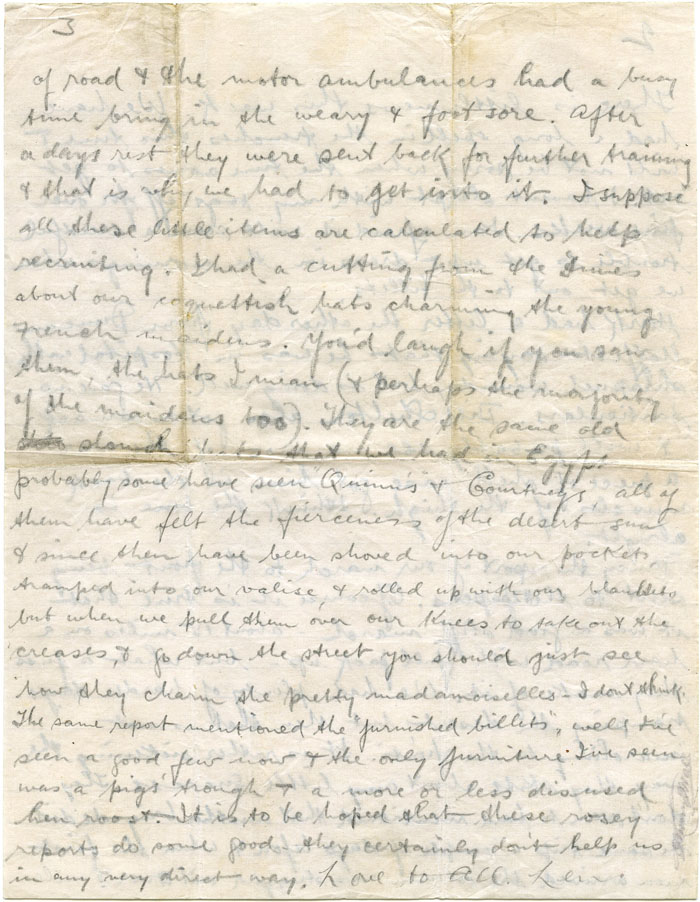 3
of road & the motor ambulances had a busy
time bring in the weary & foot sore. After
a days rest they were sent back for further training
& that is why we had to get into it. I suppose
all these little items are calculated to help
recruiting. I had a cutting from the Times
about our coquettish hats charming the young
French maidens. You'd laugh if you saw
them, the hats I mean (& perhaps the majority
of the maidens too). They are the same old
slouch hats that we had in Egypt
probably some have seen "Quinn's & Courtneys", all of
them have felt the fierceness of the desert sun
& since then have been shoved into our pockets,
tramped into our valise, & rolled up with our blankets
but when we pull them over our knees to take out the
creases, & go down the street you should just see
how they charm the pretty madamoiselles - I don't think.
The same report mentioned the "furnished billets", well I've
seen a good few now & the only furniture I've seen
was a pigs' trough & a more or less disused
hen roost. It is to be hoped that these rosey
reports do some good - they certainly don't help us
in any very direct way. Love to All. Len.